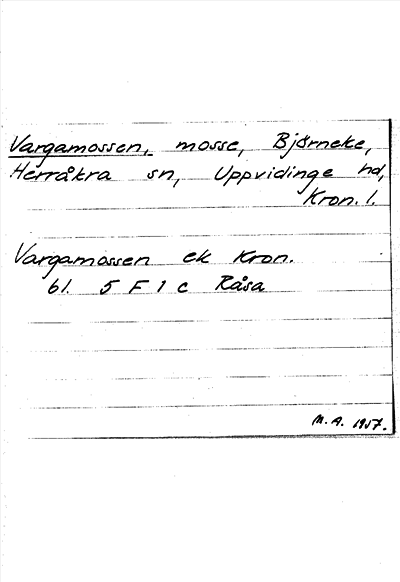 Vargamossen, mosse, Björneke,
Herråkra sn, Uppvidinge hd,
Kron. l.
Vargamossen ek Kron.
bl. 5 F 1 c Råsa
M. A. 1957.